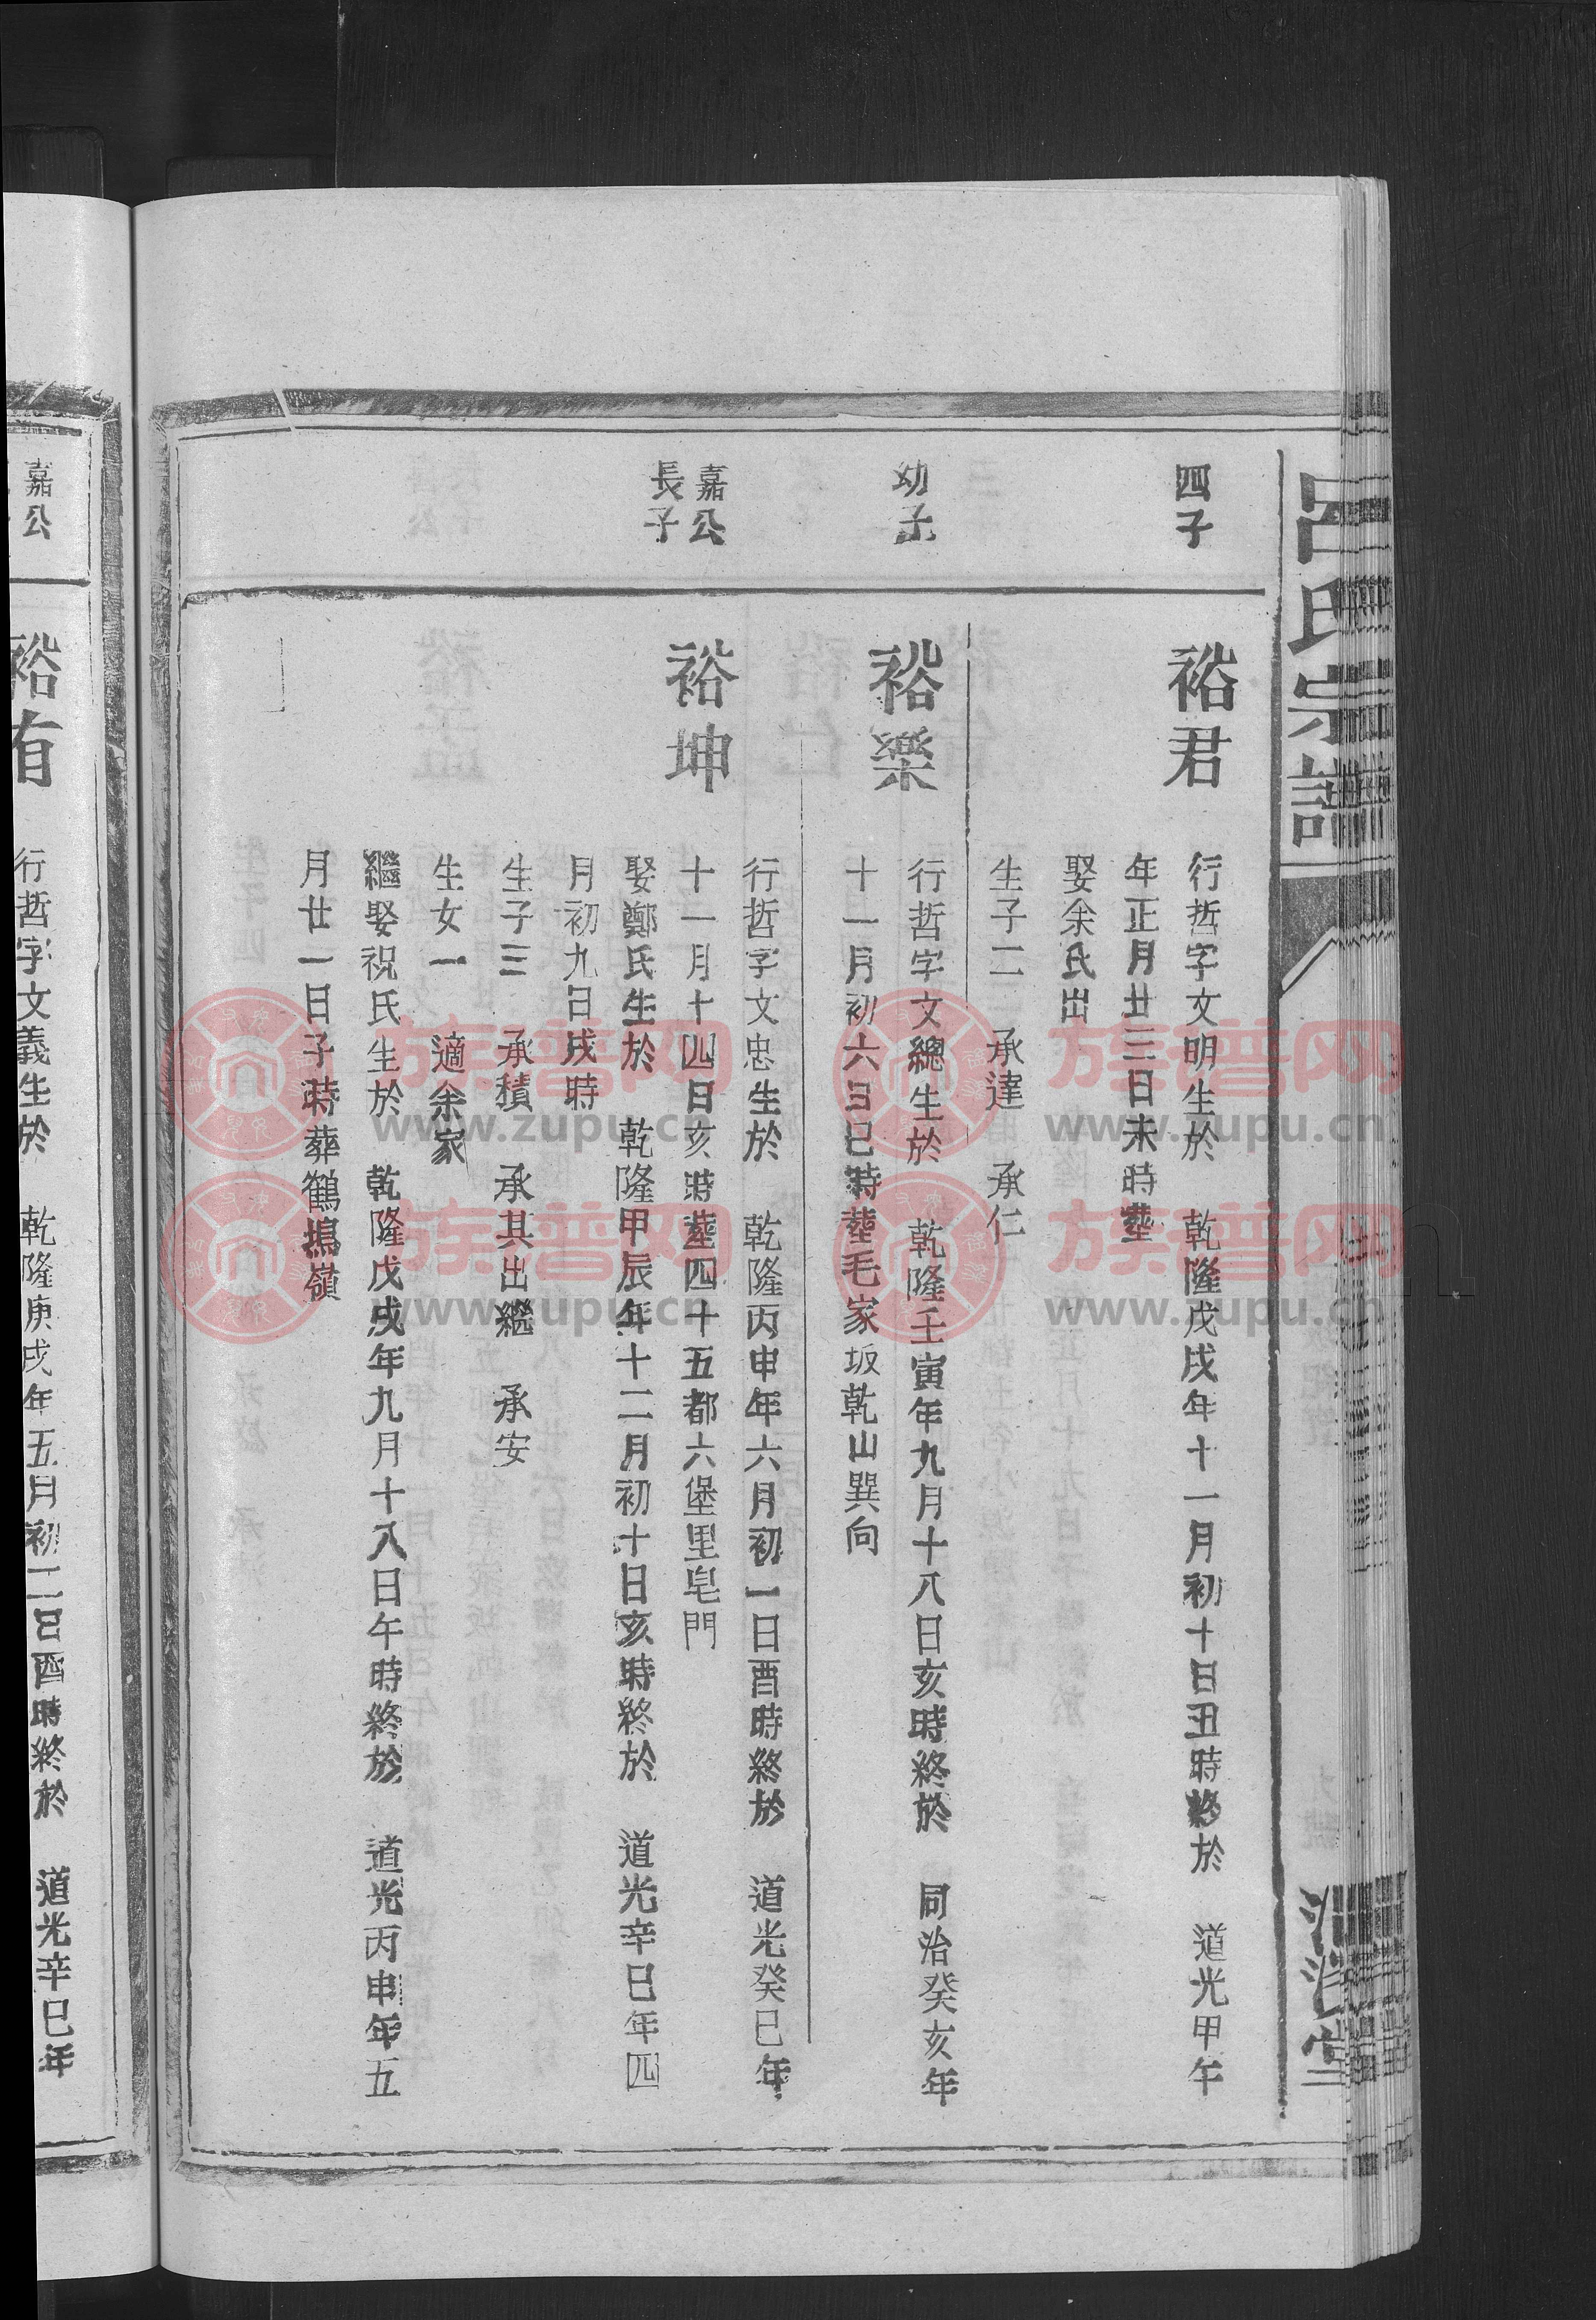 呂氏宗譜
四子
裕君
行哲字文明生於 乾隆戊戌年十一月初十日丑時終於 道光甲午
年正月廿三日未時葬
娶余氏出
生子二 承達 承仁
幼子
裕樂
行哲字文總生於 乾隆壬寅年九月十八日亥時終於 同治癸亥年
十一月初六日巳時葬毛家坂乾山巽向
嘉公
長子
裕坤
行哲字文忠生於 乾隆丙申年六月初一日酉時終於 道光癸巳年
十一月十四日亥時葬四十五都六堡里皂門
娶鄭氏生於 乾隆甲辰年十二月初十日亥時終於 道光辛巳年四
月初九日戌時
生子三 承積 承其出繼 承安
生女一 適余家
繼娶祝氏生於 乾隆戊戌年九月十八日午時終於 道光丙申年五
月廿一日子時葬鶴塢嶺
嘉公
裕有
行哲字文義生於 乾隆庚戌年五月初二日酉時終於 道光辛巳年
族譜网
www.zupu.cn
族譜网
www.zupu.cn
族譜网
www.zupu.cn
族譜网
www.zupu.cn